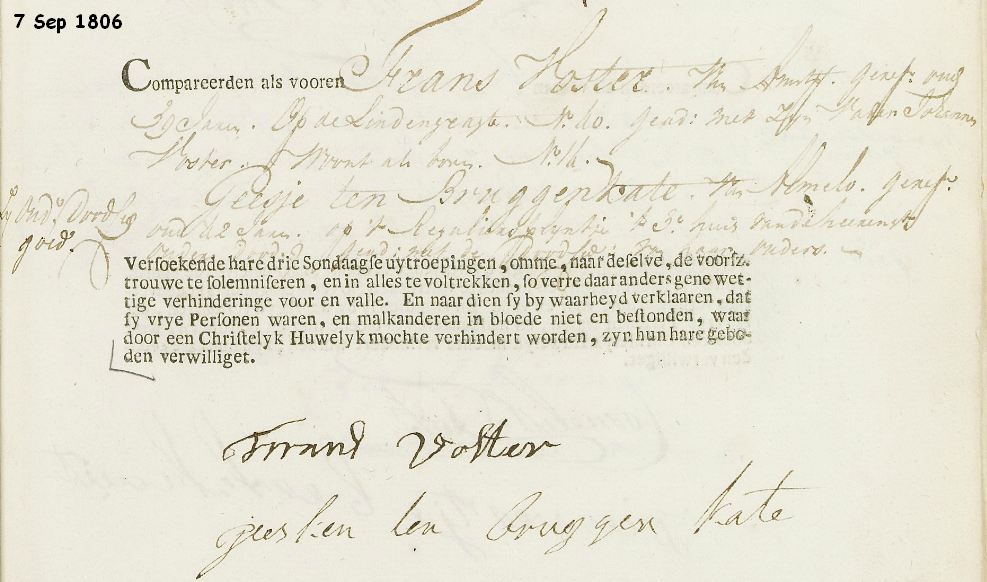 7 Sep 1806
Compareerden als vooren Frans Voster. Van Amst. geref. oud
39 Jaren. Op de Lindengragt. No. 40. gead: met Zyn Vader Johannes
Voster. Woont als boven. No. 14.
Geesje ten Bruggenkate. Van Almelo. geref.
oud 42 Jaren. op 't Reguliersplyntje 't 3e huis van de heerenst
ouders
goed.
Versoekende hare drie Sondaagse uytroepingen, omme, naar deselve, de voorsz.
trouwe te solemniseren, en in alles te voltrekken, so verre daar anders gene wet-
tige verhinderinge voor en valle. En naar dien sy by waarheyd verklaaren, dat
sy vrye Personen waren, en malkanderen in bloede niet en bestonden, waar
door een Christelyk Huwelyk mochte verhindert worden, zyn hun hare gebo-
den verwilliget.
Frans Voster
geesken ten bruggen kate